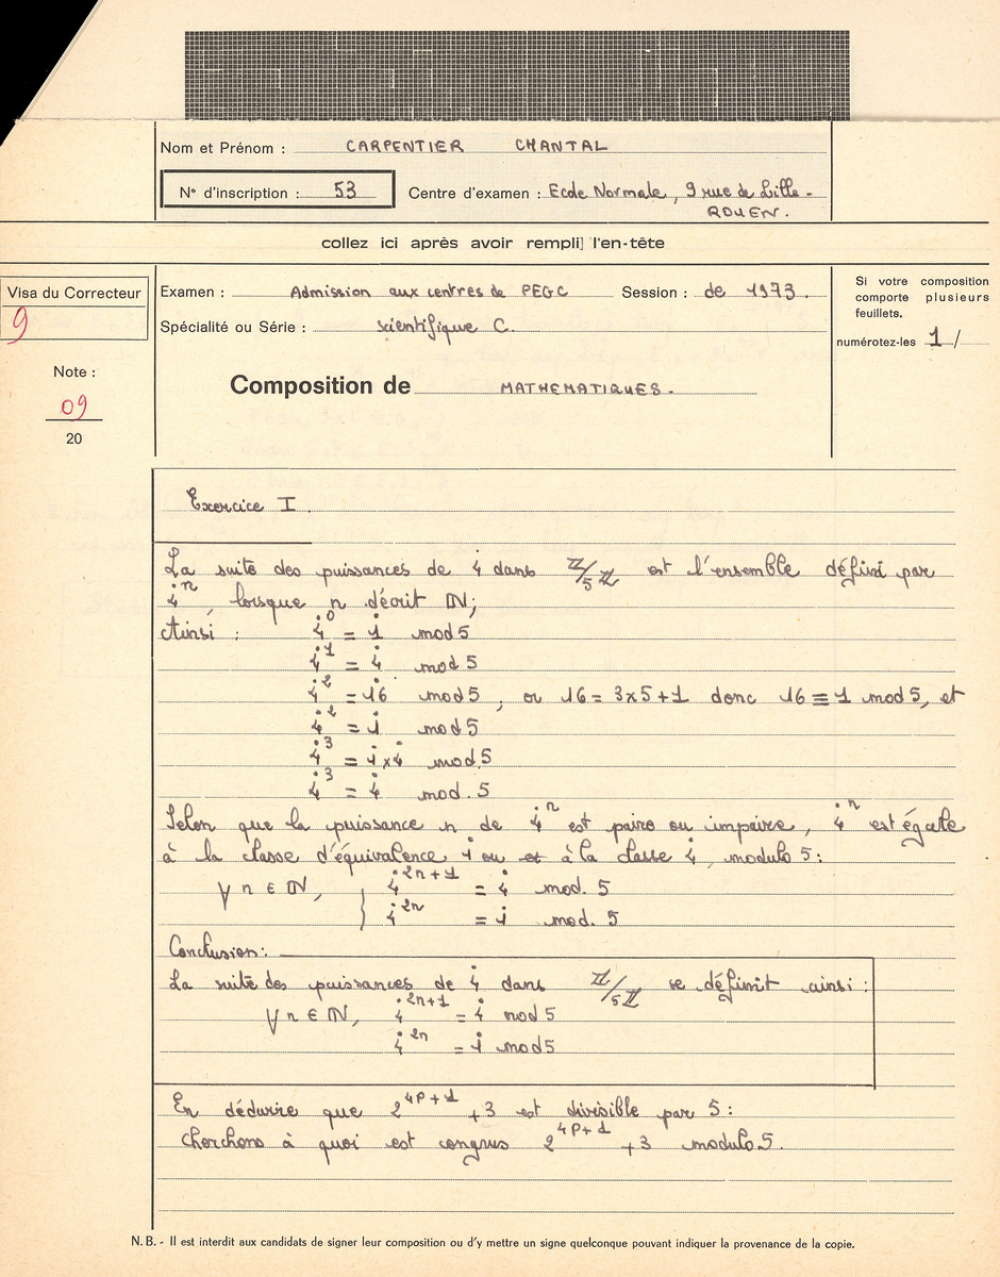 Nom et Prénom : CARPENTIER CHANTAL
N° d'inscription : 53 Centre d'examen : Ecole Normale, 9 rue de Lille -
ROUEN.
collez ici après avoir rempli l'en-tête
Visa du Correcteur
9
Note :
09
20
Examen : Admission aux centres de PEGC Session : de 1973.
Spécialité ou Série : scientifique C.
Composition de MATHEMATIQUES.
Si votre composition
comporte plusieurs
feuillets.
numérotez-les 1/
Exercice I.
La suite des puissances de 4̇ dans ℤ/5ℤ est l'ensemble défini par
4̇ⁿ, lorsque n décrit ℕ;
Ainsi : 4̇⁰ = 1̇ mod 5
4̇¹ = 4̇ mod 5
4̇² = 16 mod 5, or 16 = 3x5+1 donc 16 ≡ 1 mod 5, et
4̇² = 1̇ mod 5
4̇³ = 1̇ x 4̇ mod.5
4̇³ = 4̇ mod. 5
Selon que la puissance n de 4̇ⁿ est paire ou impaire, 4̇ⁿ est égale
à la classe d'équivalence 1̇ ou à la classe 4̇, modulo 5:
∀ n ∈ ℕ, { 4̇²ⁿ⁺¹ = 4̇ mod. 5
4̇²ⁿ = 1̇ mod. 5
Conclusion:
La suite des puissances de 4̇ dans ℤ/5ℤ se définit ainsi :
∀ n ∈ ℕ, 4̇²ⁿ⁺¹ = 4̇ mod 5
4̇²ⁿ = 1̇ mod 5
En déduire que 2^{4p+1} + 3 est divisible par 5 :
Cherchons à quoi est congrus 2^{4p+1} + 3 modulo 5.
N. B. - Il est interdit aux candidats de signer leur composition ou d'y mettre un signe quelconque pouvant indiquer la provenance de la copie.